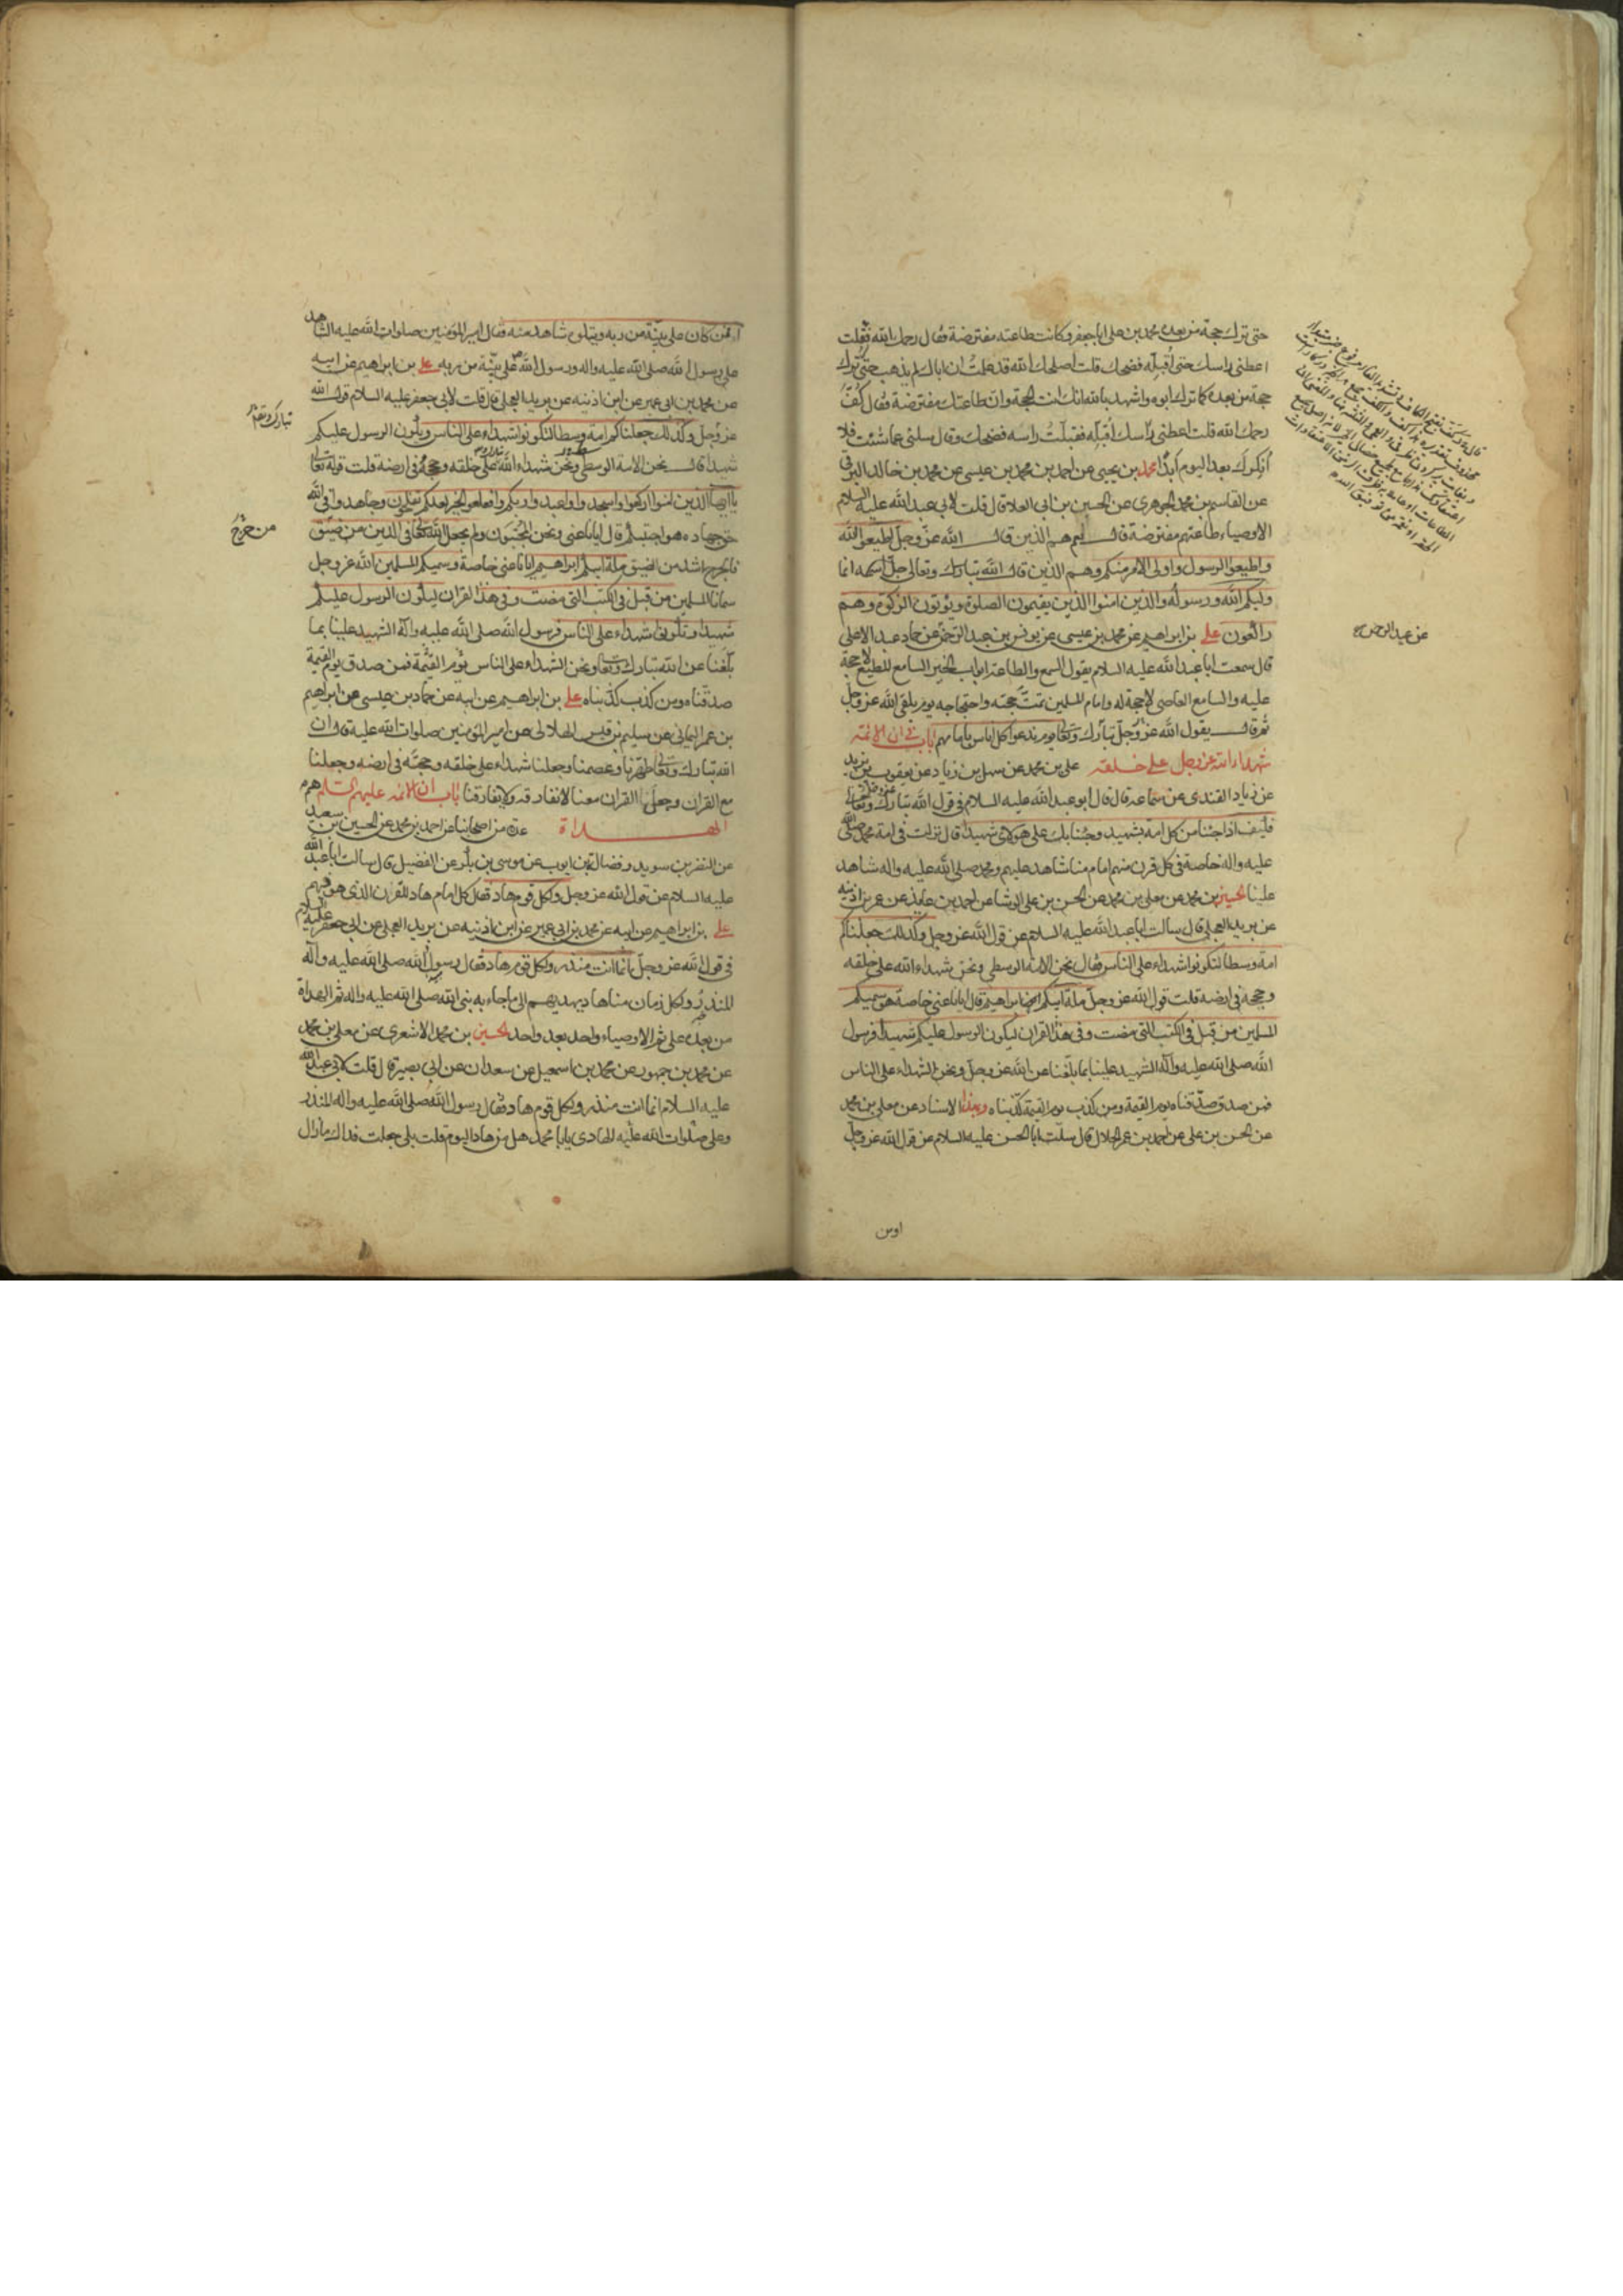 حتى ترك حجة من بعده محمد بن علي ابا جعفر وكانت طاعته مفترضة فقال رحمك الله فقلت
اعطني راسك حتى اقبله فضحك قلت اصلحك الله قد علمت ان اباك لم يذهب حتى ترك
حجة من بعده كما ترك ابوه واشهد بالله انك انت الحجة وان طاعتك مفترضة فقال كف
رحمك الله قلت اعطني راسك اقبله فقبلت راسه فضحك وقال سلني عما شئت فلا
انكرك بعد اليوم ابدا محمد بن يحيى عن احمد بن محمد بن عيسى عن محمد بن خالد البرقي
عن القاسم بن محمد الجوهري عن الحسين بن ابي العلا قال قلت لابي عبد الله عليه السلام
الاوصياء طاعتهم مفترضة قال نعم هم الذين قال الله عز وجل اطيعوا الله
واطيعوا الرسول واولي الامر منكم وهم الذين قال الله تبارك وتعالى جل اسمه انما
وليكم الله ورسوله والذين امنوا الذين يقيمون الصلوة ويؤتون الزكوة وهم
راكعون علي بن ابراهيم عن محمد بن عيسى عن يونس بن عبد الرحمن عن حماد عبد الاعلى
قال سمعت ابا عبد الله عليه السلام يقول السمع والطاعة ابواب الخير السامع المطيع لا حجة
عليه والسامع العاصي لا حجة له وامام المسلمين تمت حجته واحتجاجه يوم يلقى الله عز وجل
ثم قال يقول الله عز وجل تبارك وتعالى يوم ندعوا كل اناس بامامهم باب في ان الائمة
شهداء الله عز وجل على خلقه علي بن محمد عن سهل بن زياد عن يعقوب بن يزيد
عن زياد القندي عن سماعة قال قال ابو عبد الله عليه السلام في قول الله تبارك وتعالى
فكيف اذا جئنا من كل امة بشهيد وجئنا بك على هؤلاء شهيدا قال نزلت في امة محمد صلى الله
عليه واله خاصة في كل قرن منهم امام منا شاهد عليهم ومحمد صلى الله عليه واله شاهد
علينا الحسين بن محمد عن معلى بن محمد عن الحسن بن علي الوشا عن احمد بن عايذ عن عمر بن اذينه
عن بريد العجلي قال سالت ابا عبد الله عليه السلام عن قول الله عز وجل وكذلك جعلناكم
امة وسطا لتكونوا شهداء على الناس فقال نحن الامة الوسطى ونحن شهداء الله على خلقه
وحججه في ارضه قلت قول الله عز وجل ملة ابيكم ابراهيم قال ايانا عنى خاصة هو سميكم
المسلمين من قبل في الكتب التي مضت وفي هذا القران ليكون الرسول عليكم شهيدا فرسول
الله صلى الله عليه واله الشهيد علينا بما بلغنا عن الله عز وجل ونحن الشهداء على الناس
فمن صدق صدقناه يوم القيمة ومن كذب يوم القيمة كذبناه وبهذا الاسناد عن معلى بن محمد
عن الحسن بن علي عن احمد بن عمر الحلال قال سالت ابا الحسن عليه السلام عن قول الله عز وجل
اومن
عن عبد الرحمن
افمن كان على بينة من ربه ويتلوه شاهد منه فقال امير المؤمنين صلوات الله عليه الشاهد
على رسول الله صلى الله عليه واله ورسول الله على بينة من ربه علي بن ابراهيم عن ابيه
عن محمد بن ابي عمير عن ابن اذينه عن بريد العجلي قال قلت لابي جعفر عليه السلام قول الله
عز وجل وكذلك جعلناكم امة وسطا لتكونوا شهداء على الناس ويكون الرسول عليكم
شهيدا قال نحن الامة الوسطى ونحن شهداء الله على خلقه وحججه في ارضه قلت قوله تعالى
يا ايها الذين امنوا اركعوا واسجدوا واعبدوا ربكم وافعلوا الخير لعلكم تفلحون وجاهدوا في الله
حق جهاده هو اجتبيكم قال ايانا عنى ونحن المجتبون ولم يجعل الله تعالى في الدين من ضيق
فالحرج اشد من الضيق ملة ابيكم ابراهيم ايانا عنى خاصة وسميكم المسلمين الله عز وجل
سمانا المسلمين من قبل في الكتب التي مضت وفي هذا القران ليكون الرسول عليكم
شهيدا وتكونوا شهداء على الناس فرسول الله صلى الله عليه واله الشهيد علينا بما
بلغنا عن الله تبارك وتعالى ونحن الشهداء على الناس يوم القيمة فمن صدق يوم القيمة
صدقناه ومن كذب كذبناه علي بن ابراهيم عن ابيه عن حماد بن عيسى عن ابراهيم
بن عمر اليماني عن سليم بن قيس الهلالي عن امير المؤمنين صلوات الله عليه قال ان
الله تبارك وتعالى طهرنا وعصمنا وجعلنا شهداء على خلقه وحجته في ارضه وجعلنا
مع القران وجعل القران معنا لا نفارقه ولا يفارقنا باب ان الائمة عليهم السلام هم
الهداة عدة من اصحابنا عن احمد بن محمد عن الحسين بن سعيد
عن النضر بن سويد وفضالة بن ايوب عن موسى بن بكر عن الفضيل قال سالت ابا عبد الله
عليه السلام عن قول الله عز وجل ولكل قوم هاد فقال كل امام هاد للقرن الذي هو فيهم
علي بن ابراهيم عن ابيه عن محمد بن ابي عمير عن ابن اذينه عن بريد العجلي عن ابي جعفر عليه السلام
في قول الله عز وجل انما انت منذر ولكل قوم هاد فقال رسول الله صلى الله عليه واله
المنذر ولكل زمان منا هاد يهديهم الى ما جاء به نبي الله صلى الله عليه واله ثم الهداة
من بعده علي ثم الاوصياء واحد بعد واحد الحسين بن محمد الاشعري عن معلى بن محمد
عن محمد بن جمهور عن محمد بن اسمعيل عن سعدان عن ابي بصير قال قلت لابي عبد الله
عليه السلام انما انت منذر ولكل قوم هاد فقال رسول الله صلى الله عليه واله المنذر
وعلي صلوات الله عليه الهادي يا با محمد هل من هاد اليوم قلت بلى جعلت فداك ما زال
تبارك وتعالى
من حرج